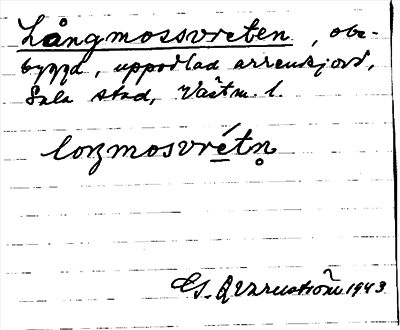 Långmossvreten, obe-
byggd, uppodlad arrendejord,
Sala stad, Västm. l.
loŋmosvrétn̥
Es. Qvarnström 1943